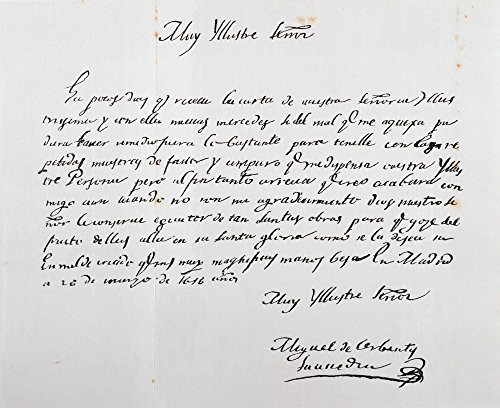 Muy Yllustre Señor
Ha pocos dias q recevi la carta de vuestra Señoria Yllus
trissima y con ella nuevas mercedes si del mal q me aquexa pu
diera haver remedio fuera lo bastante para tenelle con las re
petidas muestras de favor y amparo q me dispensa vuestra Yllus
tre Persona pero al fin tanto arrecia q creo acabara con
migo aun cuando no con mi agradecimiento Dios nuestro Se
ñor le conserve egecutor de tan santas obras para q goze del
fruto dellas alla en su santa gloria como se la desea su
humilde criado q sus muy magnificas manos besa En Madrid
a 26 de marzo de 1616 años
Muy Yllustre Señor
Miguel de Cerbantes
Saavedra